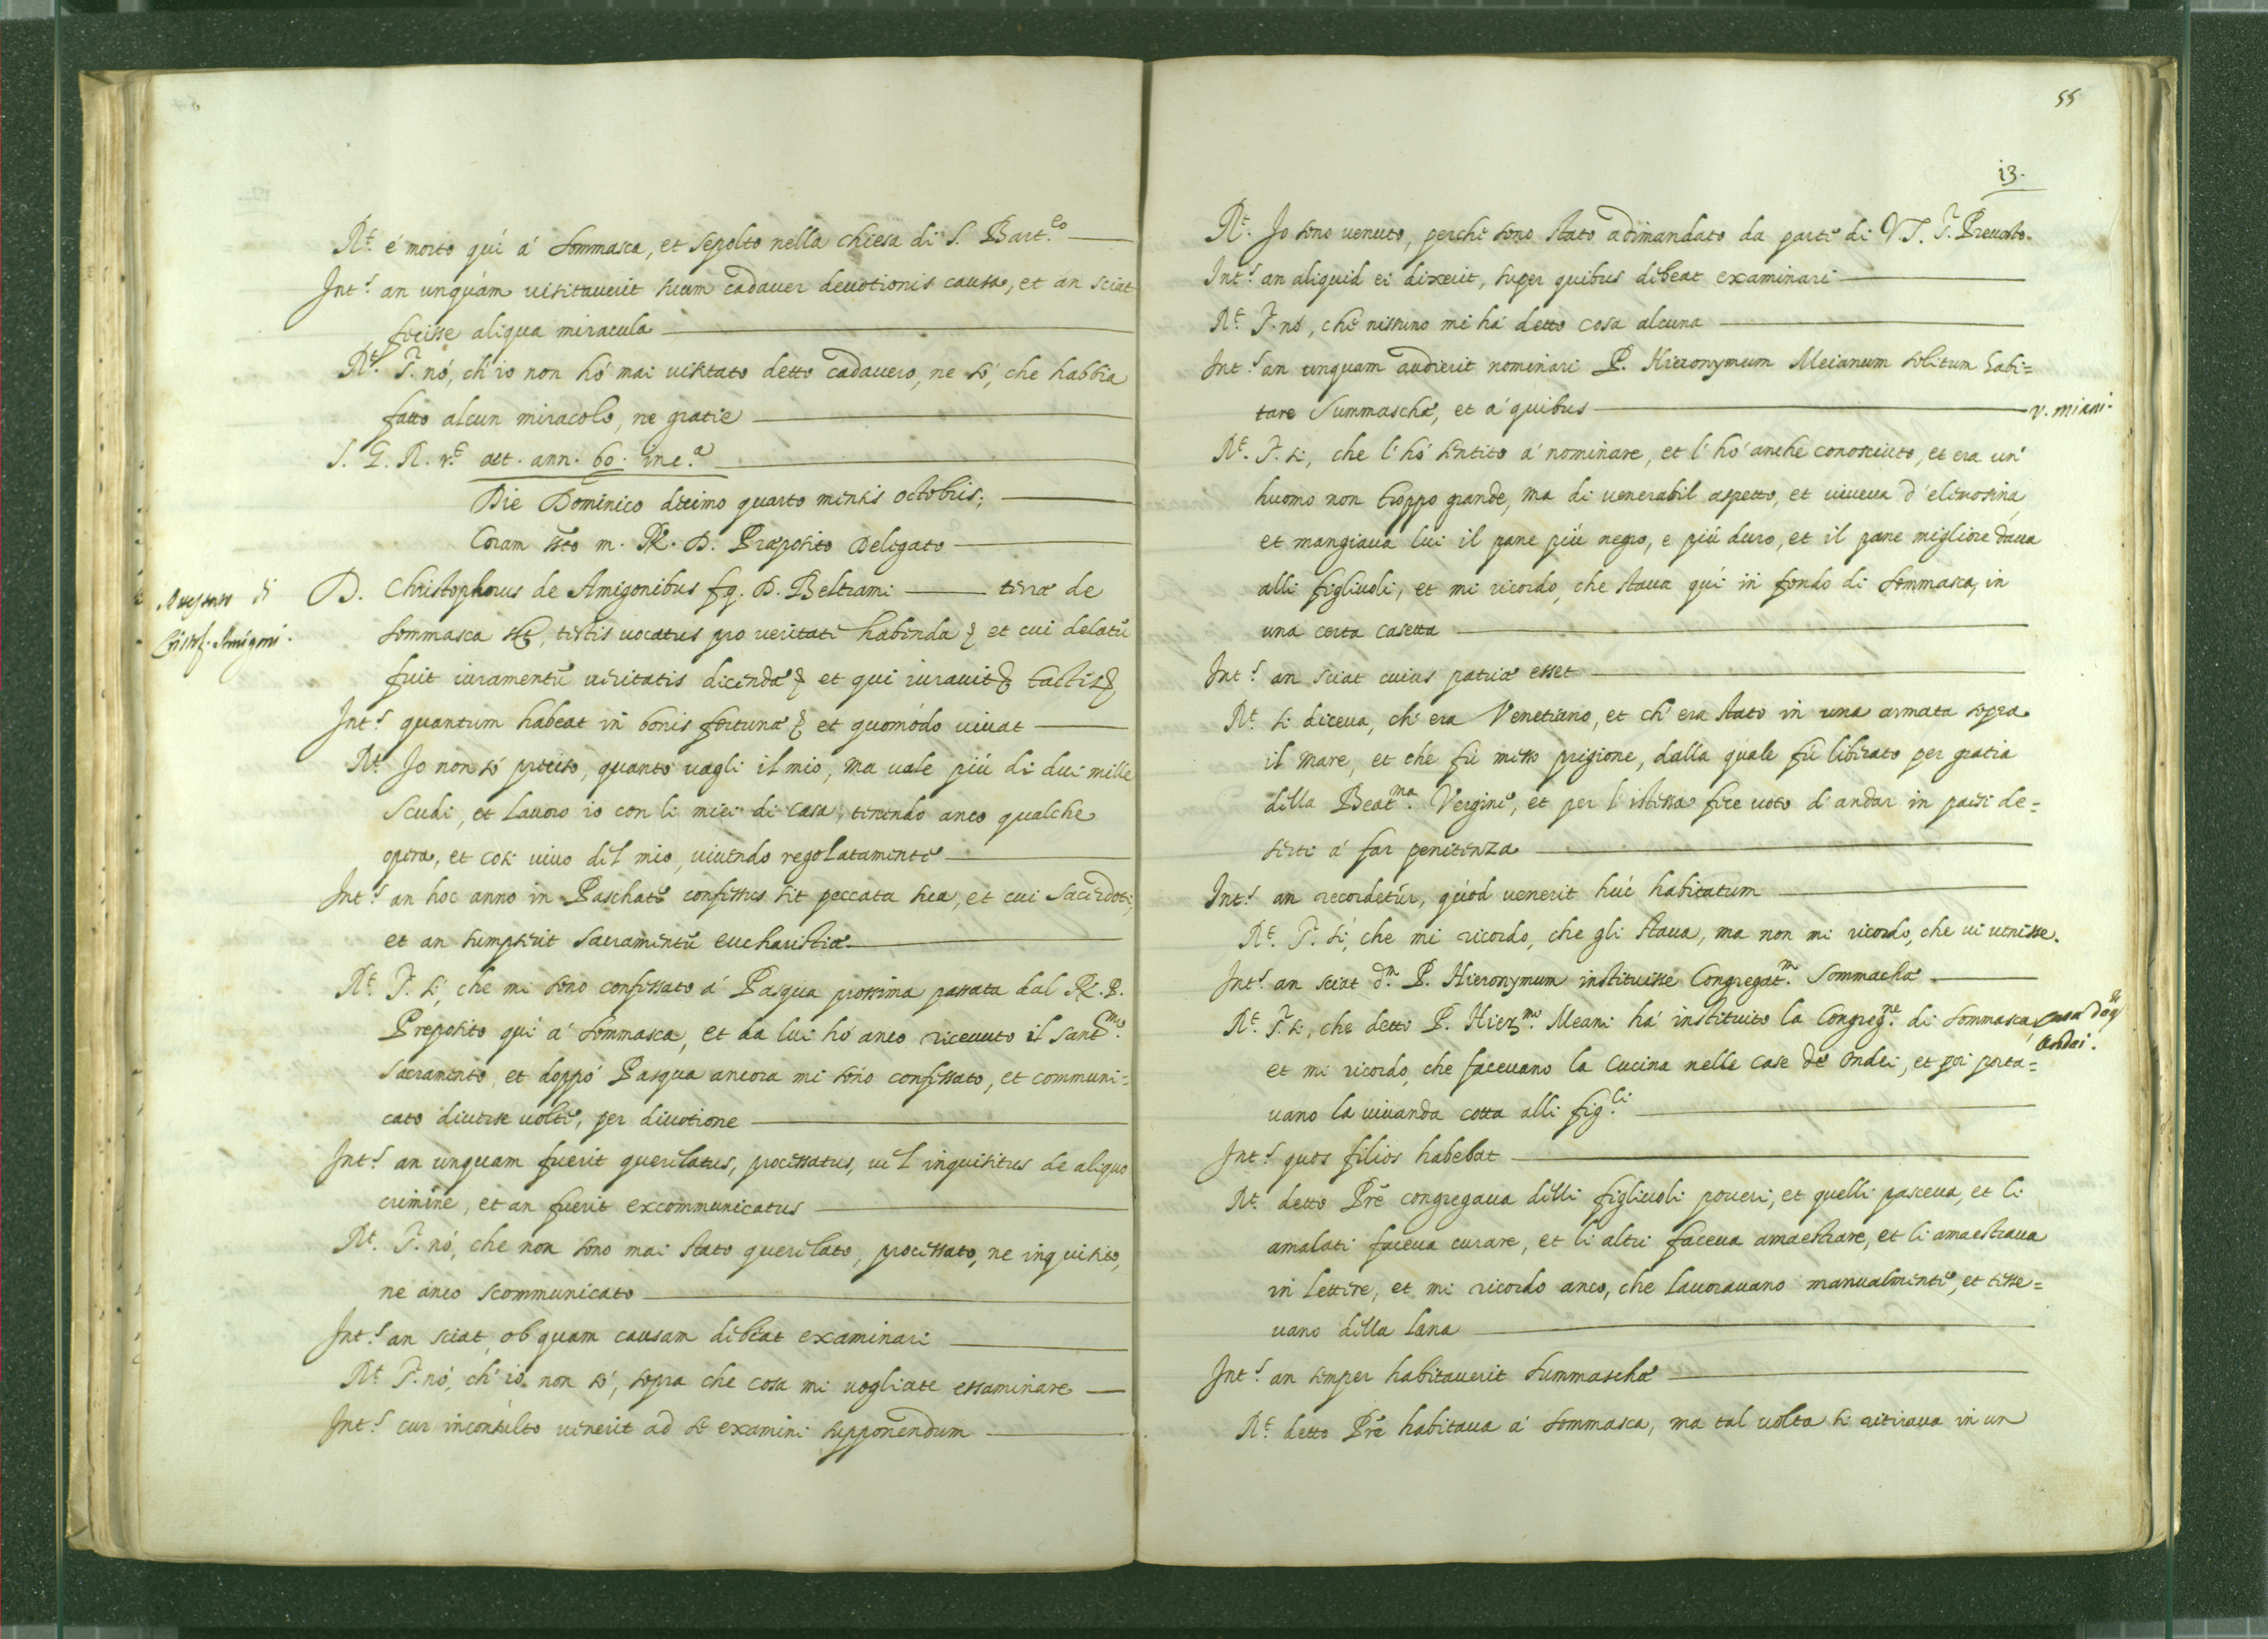 R.t é morto quí á Sommasca, et sepolto nella chiesa di S. Bart.eo
Int.s an unquám uisitauerit suum cadauer deuotionis causa, et an sciat
fecisse aliqua miracula
R.t P. nó, ch'io non hó mai uisitato detto cadauero, ne só, che habbia
fatto alcun miracolo, ne gratie
S. G. R. r.t aet. ann. 60. in c.a
Die Dominico decimo quarto mensis octobris;
Coram s.to m. R. D. Præposito Delegato
Christof. Amigoni.
D. Christophorus de Amigonibus f.q. D. Beltrami terræ de
Sommasca testis uocatus pro ueritate habenda et cui delatũ
fuit iuramentũ ueritatis dicendæ et qui iurauit tactis
Int.s quantum habeat in bonis fortunæ et quomódo uiuat
R.t Jo non só preciso, quanto uagli il mio, ma uale piú di dui mille
scudi, et lauoro io con li miei di casa, tenendo anco qualche
opera, et cosi uiuo del mio, uiuendo regolatamente
Int.s an hoc anno in Paschate confessus sit peccata sua, et cui Sacerdoti,
et an sumpserit Sacramentũ eucharistiæ
R.t P. si, che mi sono confessato á Pasqua prossima passata dal R. P.
Preposito qui á Sommasca, et da lui hó anco riceuuto il Sanc.mo
Sacramento, et doppó Pasqua ancora mi sono confessato, et communi=
cato diuerse uolte, per diuotione
Int.s an unquam fuerit querelatus, processatus, uel inquisitus de aliquo
crimine, et an fuerit excommunicatus
R.t P. nó, che non sono mai stato querelato, processato, ne inquisito,
ne anco scommunicato
Int.s an sciat, ob quam causam debeat examinari
R.t P. nó, ch'ió non só, sopra che cosa mi uogliate essaminare
Int.s cur inconsulto uenerit ad se examini supponendum
55
i3.
R.t Jo sono uenuto, perche sono stato adimandato da parte di V. S. P. Preuosto.
Int.s an aliquid ei dixerit, super quibus debeat examinari
R.t P. nó, che nissuno mi há detto cosa alcuna
Int.s an unquam audierit nominari P. Hieronymum Meianum solitum habi=
tare Summaschæ, et á quibus
v. miani.
R.t P. si, che l'hó sentito á nominare, et l'hó anche conosciuto, et era un'
huomo non troppo grande, ma di uenerabil aspetto, et uiueua d'elimosina,
et mangiaua lui il pane piú negro, e piú duro, et il pane migliore daua
alli figliuoli, et mi ricordo, che staua quí in fondo di Sommasca, in
una certa casetta
Int.s an sciat cuius patriæ esset
R.t si diceua, ch'era Venetiano, et ch'era stato in una armata sopra
il mare, et che fú messo prigione, dalla quale fú liberato per gratia
della Beat.ma Vergine, et per l'istessa fece uoto d'andar in paesi de=
serti á far penitenza
Int.s an recordetur, quod uenerit huc habitatum
R.t P. sí, che mi ricordo, che gli staua, ma non mi ricordo, che ui uenisse.
Int.s an sciat d.m P. Hieronymum instituisse Congregat.m Sommachæ
R.t P. si, che detto P. Hier.mo Meani há instituito la Congreg.ne di Sommasca,
casa
Ondei.
et mi ricordo, che faceuano la cucina nelle case de Ondei, et poi porta=
uano la uiuanda cotta alli fig.li
Int.s quos filios habebat
R.t detto Prẽ congregaua delli figliuoli poueri, et quelli pasceua, et li
amalati faceua curare, et li altri faceua amaestrare, et li amaestraua
in lettere, et mi ricordo anco, che lauorauano manualmente, et tesse=
uano della lana
Int.s an semper habitauerit Summaschæ
R.t detto Prẽ habitaua á Sommasca, ma tal uolta si ritiraua in un